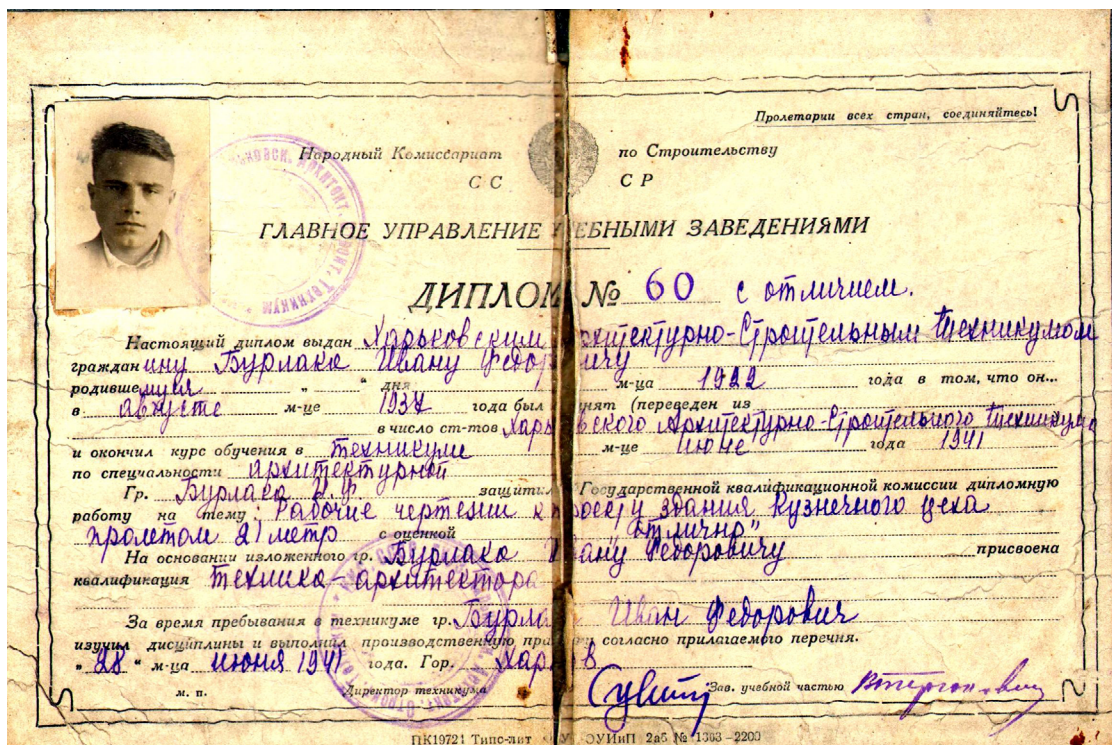 Пролетарии всех стран, соединяйтесь!
Народный Комиссариат по Строительству
СС СР
ГЛАВНОЕ УПРАВЛЕНИЕ УЧЕБНЫМИ ЗАВЕДЕНИЯМИ
ДИПЛОМ № 60 с отличием.
Настоящий диплом выдан Харьковским Архитектурно-Строительным Техникумом
гражданину Бурлака Ивану Федоровичу
родившемуся " " дня м-ца 1922 года в том, что он...
в августе м-це 1937 года был принят (переведен из
в число ст-тов Харьковского Архитектурно-Строительного Техникума
и окончил курс обучения в техникуме м-це июне года 1941
по специальности архитектурной
Гр. Бурлака И.Ф. защитил Государственной квалификационной комиссии дипломную
работу на тему: Рабочие чертежи к проекту здания Кузнечного цеха
пролетом 21 метр с оценкой „отлично"
На основании изложенного гр. Бурлака Ивану Федоровичу присвоена
квалификация техника-архитектора
За время пребывания в техникуме гр. Бурлака Иван Федорович
изучил дисциплины и выполнил производственную практику согласно прилагаемого перечня.
" 28 " м-ца июня 1941 года. Гор. Харьков
м. п. Директор техникума Зав. учебной частью
ПК19721 Типо-лит ОУИиП Заб № 1303-2200